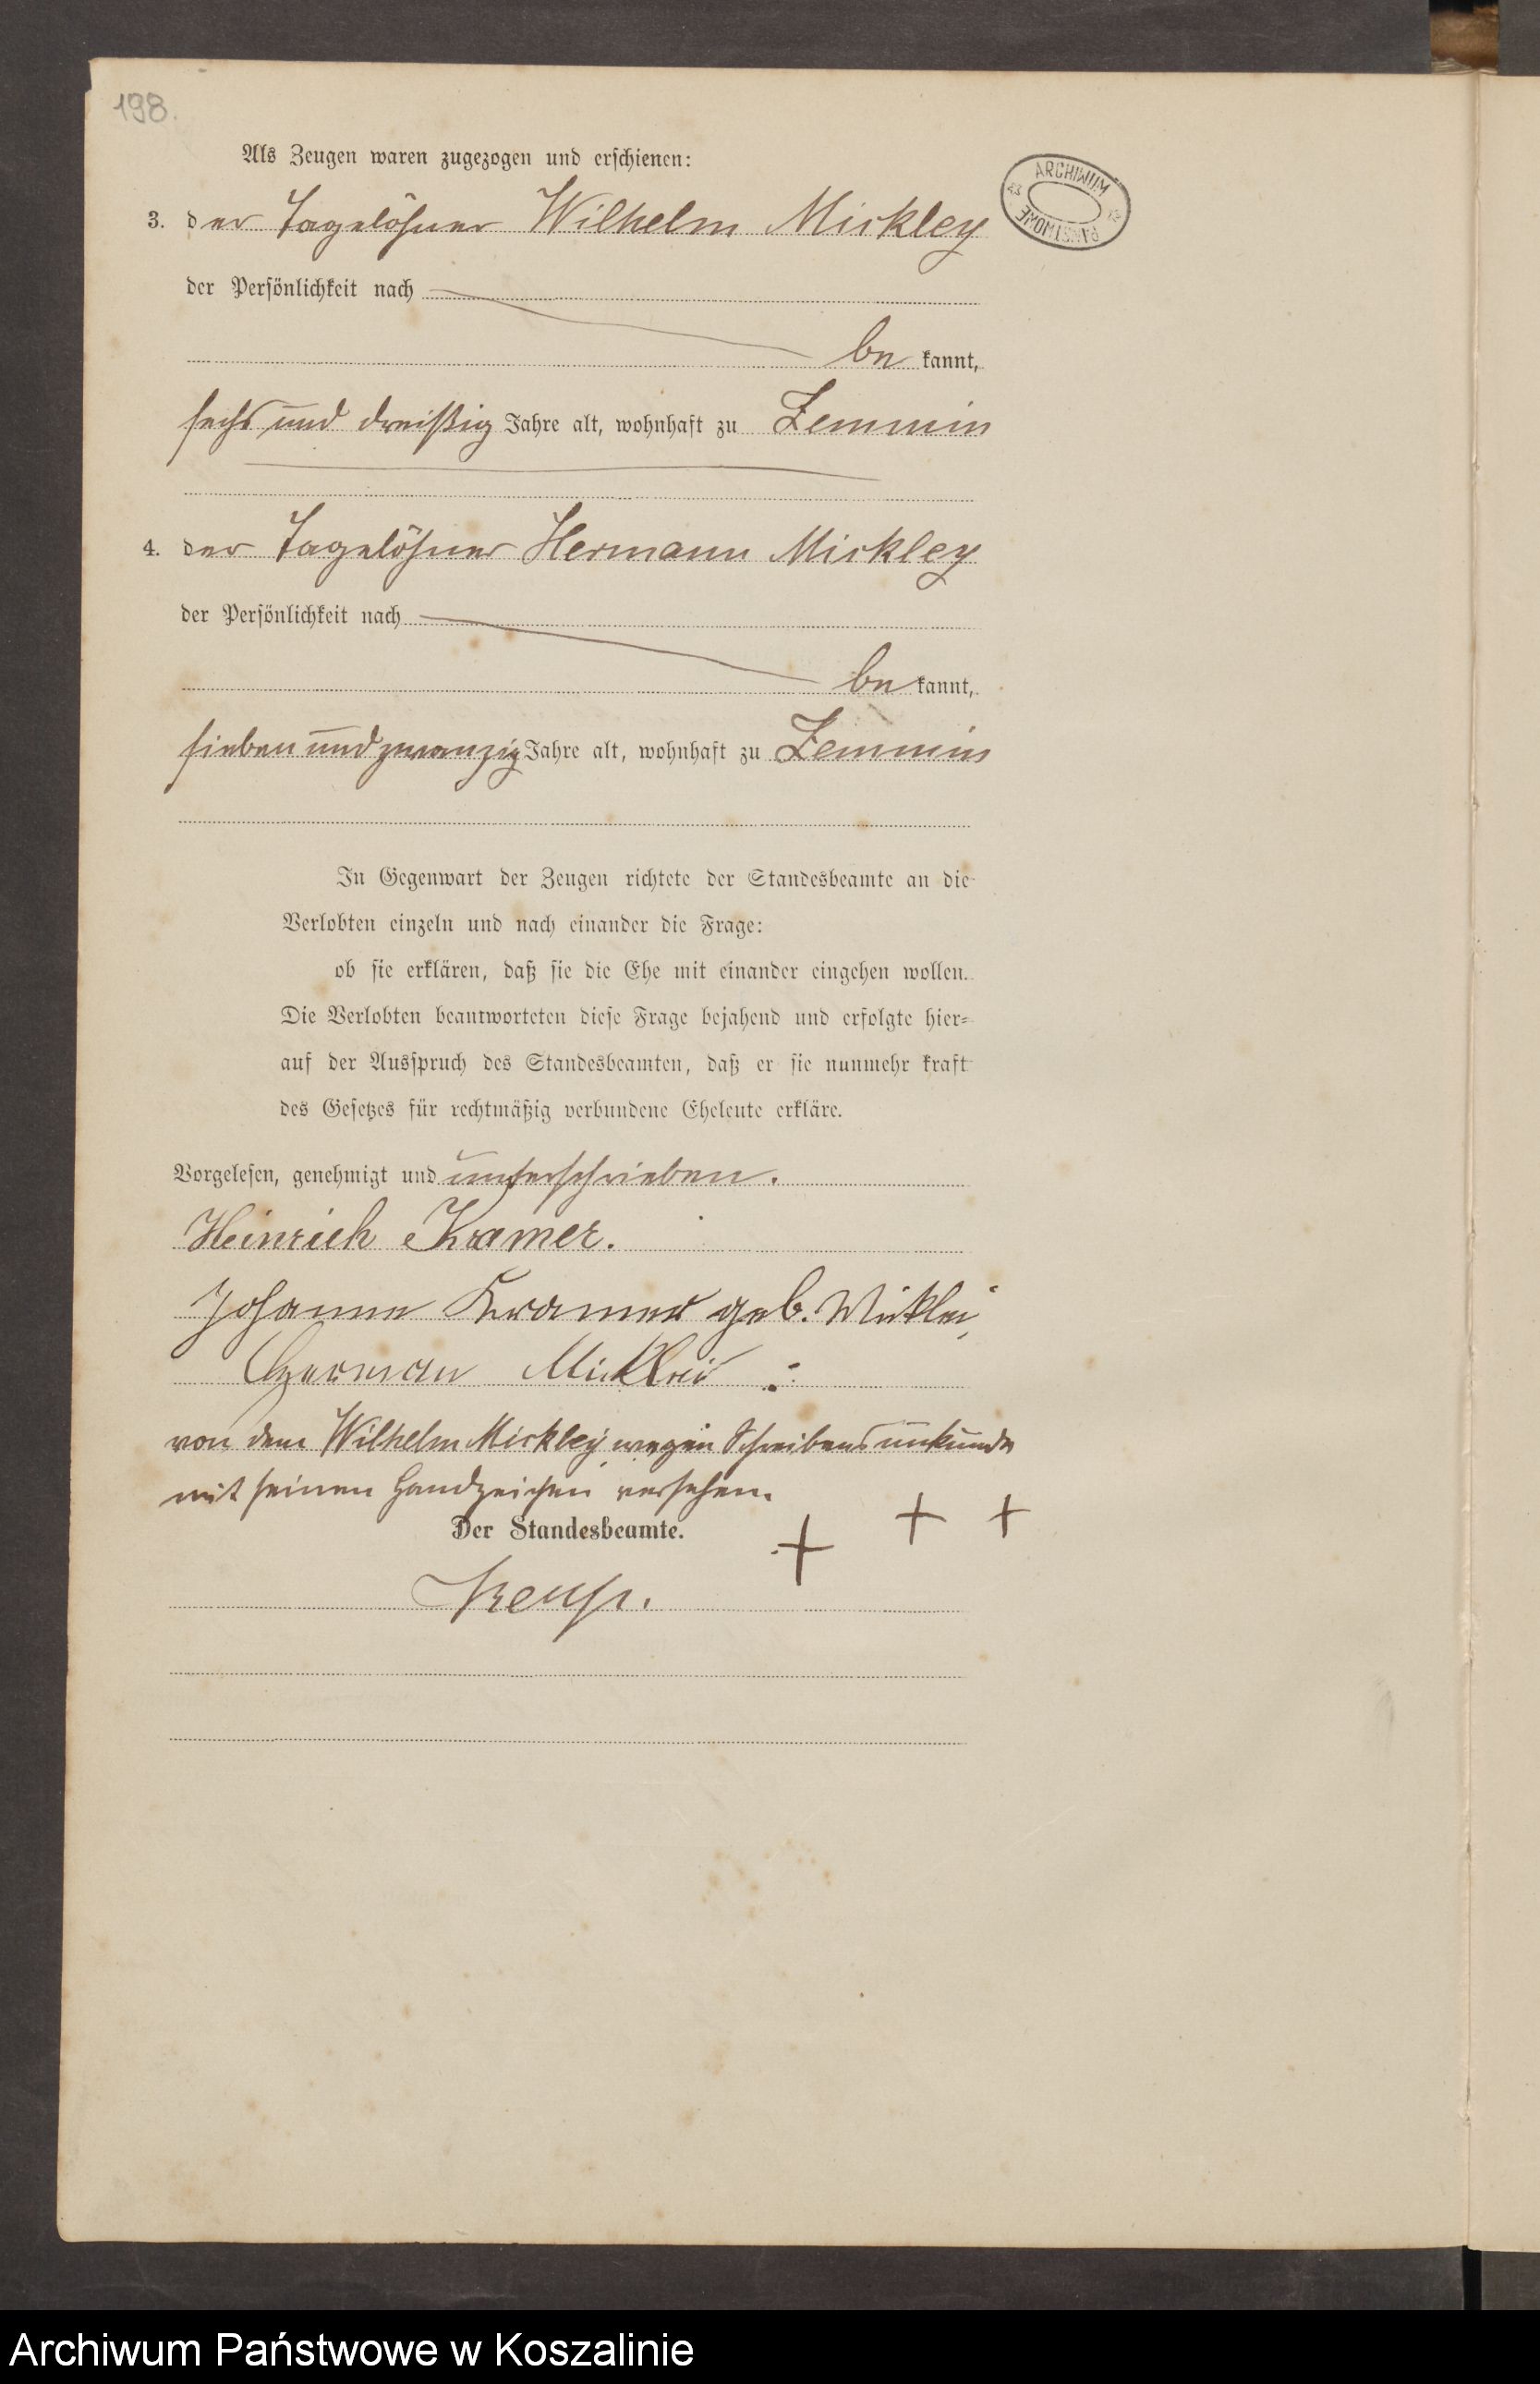 198.
Als Zeugen waren zugezogen und erschienen:
ARCHIWUM
PAŃSTWOWE
3. der Tagelöhner Wilhelm Mickley
der Persönlichkeit nach
be kannt,
sechs und dreißig Jahre alt, wohnhaft zu Zemmin
4. der Tagelöhner Hermann Mickley
der Persönlichkeit nach
be kannt,
sieben und zwanzig Jahre alt, wohnhaft zu Zemmin
In Gegenwart der Zeugen richtete der Standesbeamte an die
Verlobten einzeln und nach einander die Frage:
ob sie erklären, daß sie die Ehe mit einander eingehen wollen.
Die Verlobten beantworteten diese Frage bejahend und erfolgte hier=
auf der Ausspruch des Standesbeamten, daß er sie nunmehr kraft
des Gesetzes für rechtmäßig verbundene Eheleute erkläre.
Vorgelesen, genehmigt und unterschrieben.
Heinrich Kramer.
Johanne Kramer geb. Micklei
Herman Micklei
von dem Wilhelm Mickley wegen Schreibensunkunde
mit seinen Handzeichen versehen.
+ + +
Der Standesbeamte.
Archiwum Państwowe w Koszalinie